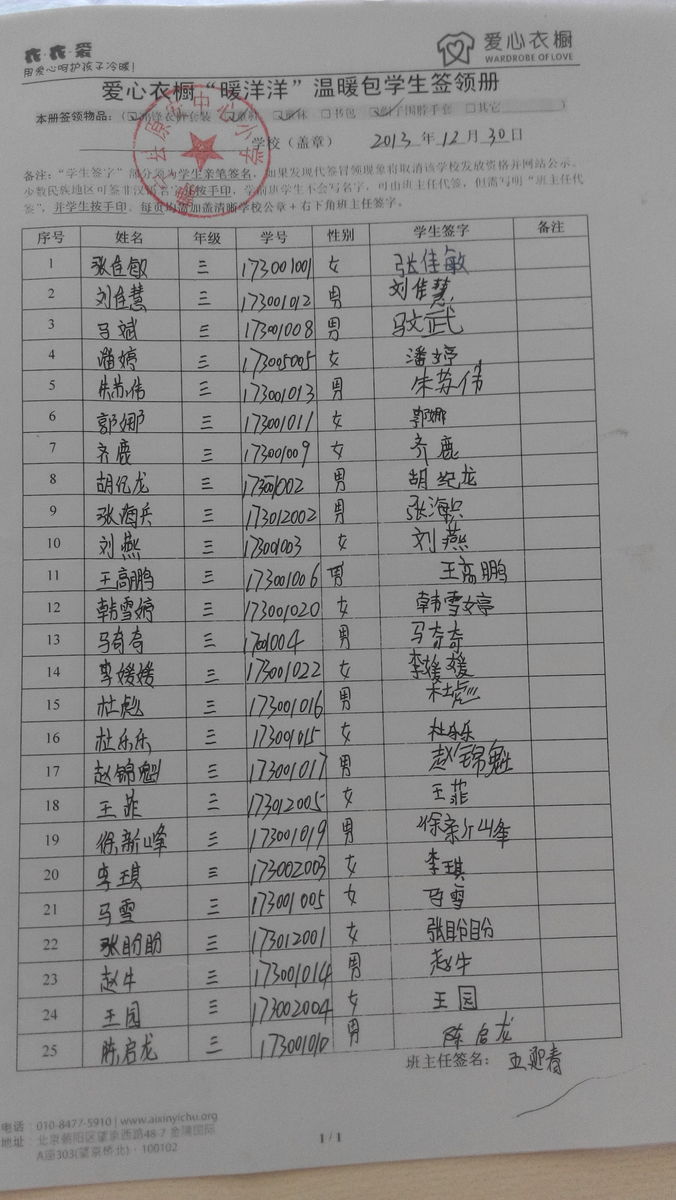 衣·衣·爱
用爱心呵护孩子冷暖!
爱心衣橱
WARDROBE OF LOVE
爱心衣橱“暖洋洋”温暖包学生签领册
本册签领物品: □书包 帽子围脖手套 □其它
学校(盖章) 2013年12月30日
备注:“学生签字”部分须为学生亲笔签名,如果发现代签冒领现象将取消该学校发放资格并网站公示。
少数民族地区可签非汉语名字并按手印,学前班学生不会写名字,可由班主任代签,但需写明“班主任代
签”,并学生按手印。每页均需加盖清晰学校公章+右下角班主任签字。
序号 姓名 年级 学号 性别 学生签字 备注
1 张佳敏 三 173001001 女 张佳敏
2 刘佳慧 三 173001012 男 刘佳慧
3 马斌 三 173001008 男 马斌
4 潘婷 三 173005005 女 潘婷
5 朱苏伟 三 173001013 男 朱苏伟
6 郭娜 三 173001011 女 郭娜
7 齐鹿 三 173001009 女 齐鹿
8 胡纪龙 三 173001002 男 胡纪龙
9 张海兵 三 173012002 男 张海
10 刘燕 三 173001003 女 刘燕
11 王高鹏 三 173001006 男 王高鹏
12 韩雪婷 三 173001020 女 韩雪婷
13 马奇奇 三 男 马奇奇
14 李媛媛 三 173001022 女 李媛媛
15 杜彪 三 173001016 男 杜彪
16 杜乐乐 三 173001015 女 杜乐乐
17 赵锦魁 三 173001017 男 赵锦魁
18 王菲 三 173012005 女 王菲
19 徐新峰 三 173001019 男 徐新峰
20 李琪 三 173002003 女 李琪
21 马雪 三 173001005 女 马雪
22 张盼盼 三 173012001 女 张盼盼
23 赵牛 三 173001014 男 赵牛
24 王园 三 173002004 女 王园
25 陈启龙 三 173001010 男 陈启龙
班主任签名:
电话:010-8477-5910 | www.aixinyichu.org
地址:北京朝阳区望京西路48-7 金隅国际
A座303(望京桥北)·100102
1 / 1